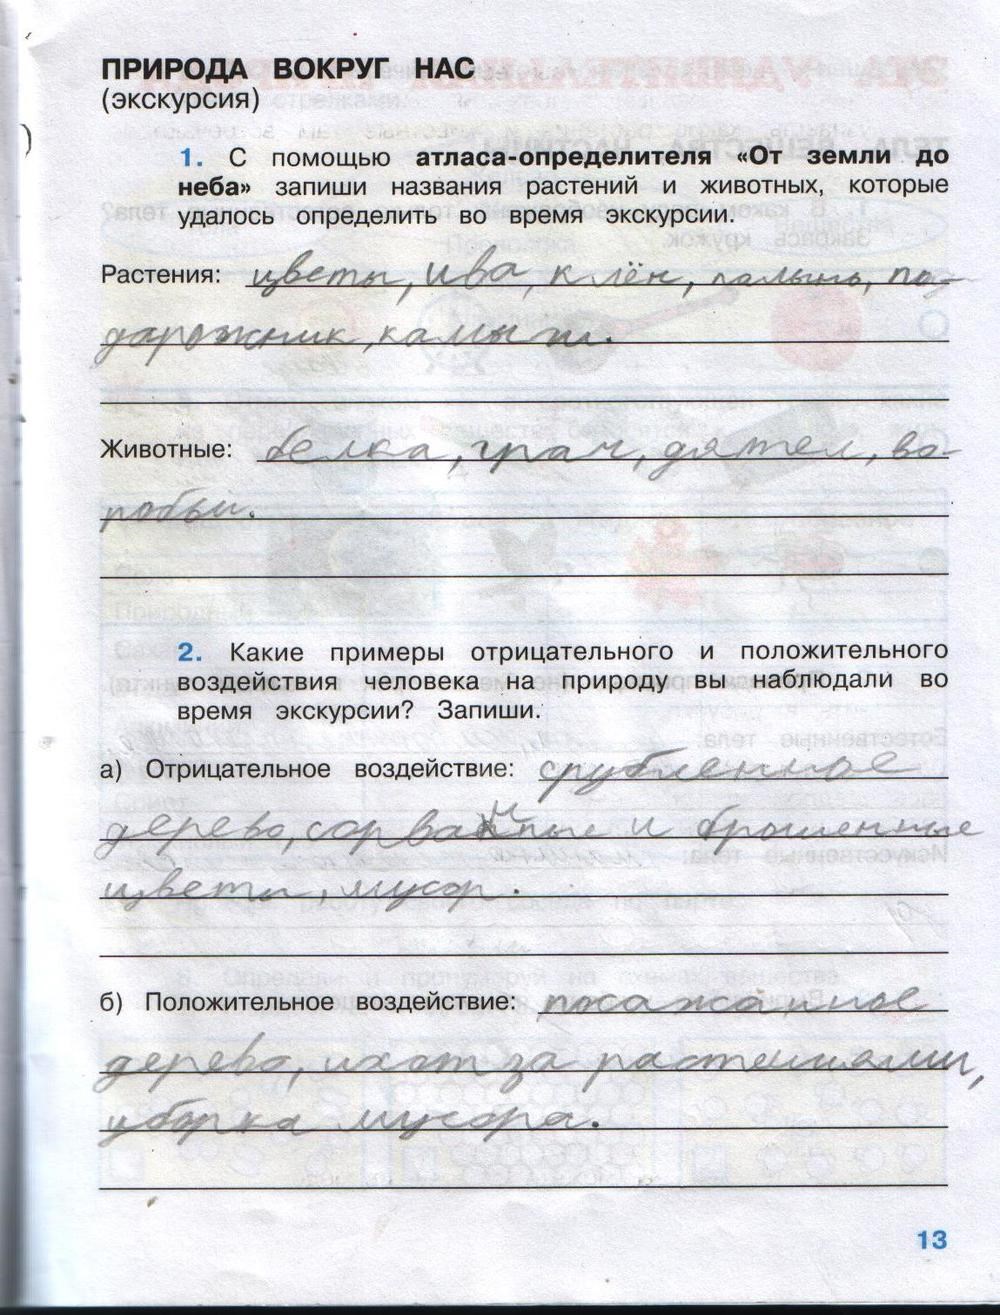 ПРИРОДА ВОКРУГ НАС
(экскурсия)
1. С помощью атласа-определителя «От земли до
неба» запиши названия растений и животных, которые
удалось определить во время экскурсии.
Растения: цветы, ива, клён, палынь, по-
дарожник, камыш.
Животные: белка, грач, дятел, ва-
робьи.
2. Какие примеры отрицательного и положительного
воздействия человека на природу вы наблюдали во
время экскурсии? Запиши.
а) Отрицательное воздействие: срубленное
дерево, сорванные и брошенные
цветы, мусор.
б) Положительное воздействие: посажанное
дерево, ухот за растениями,
уборка мусора.
13